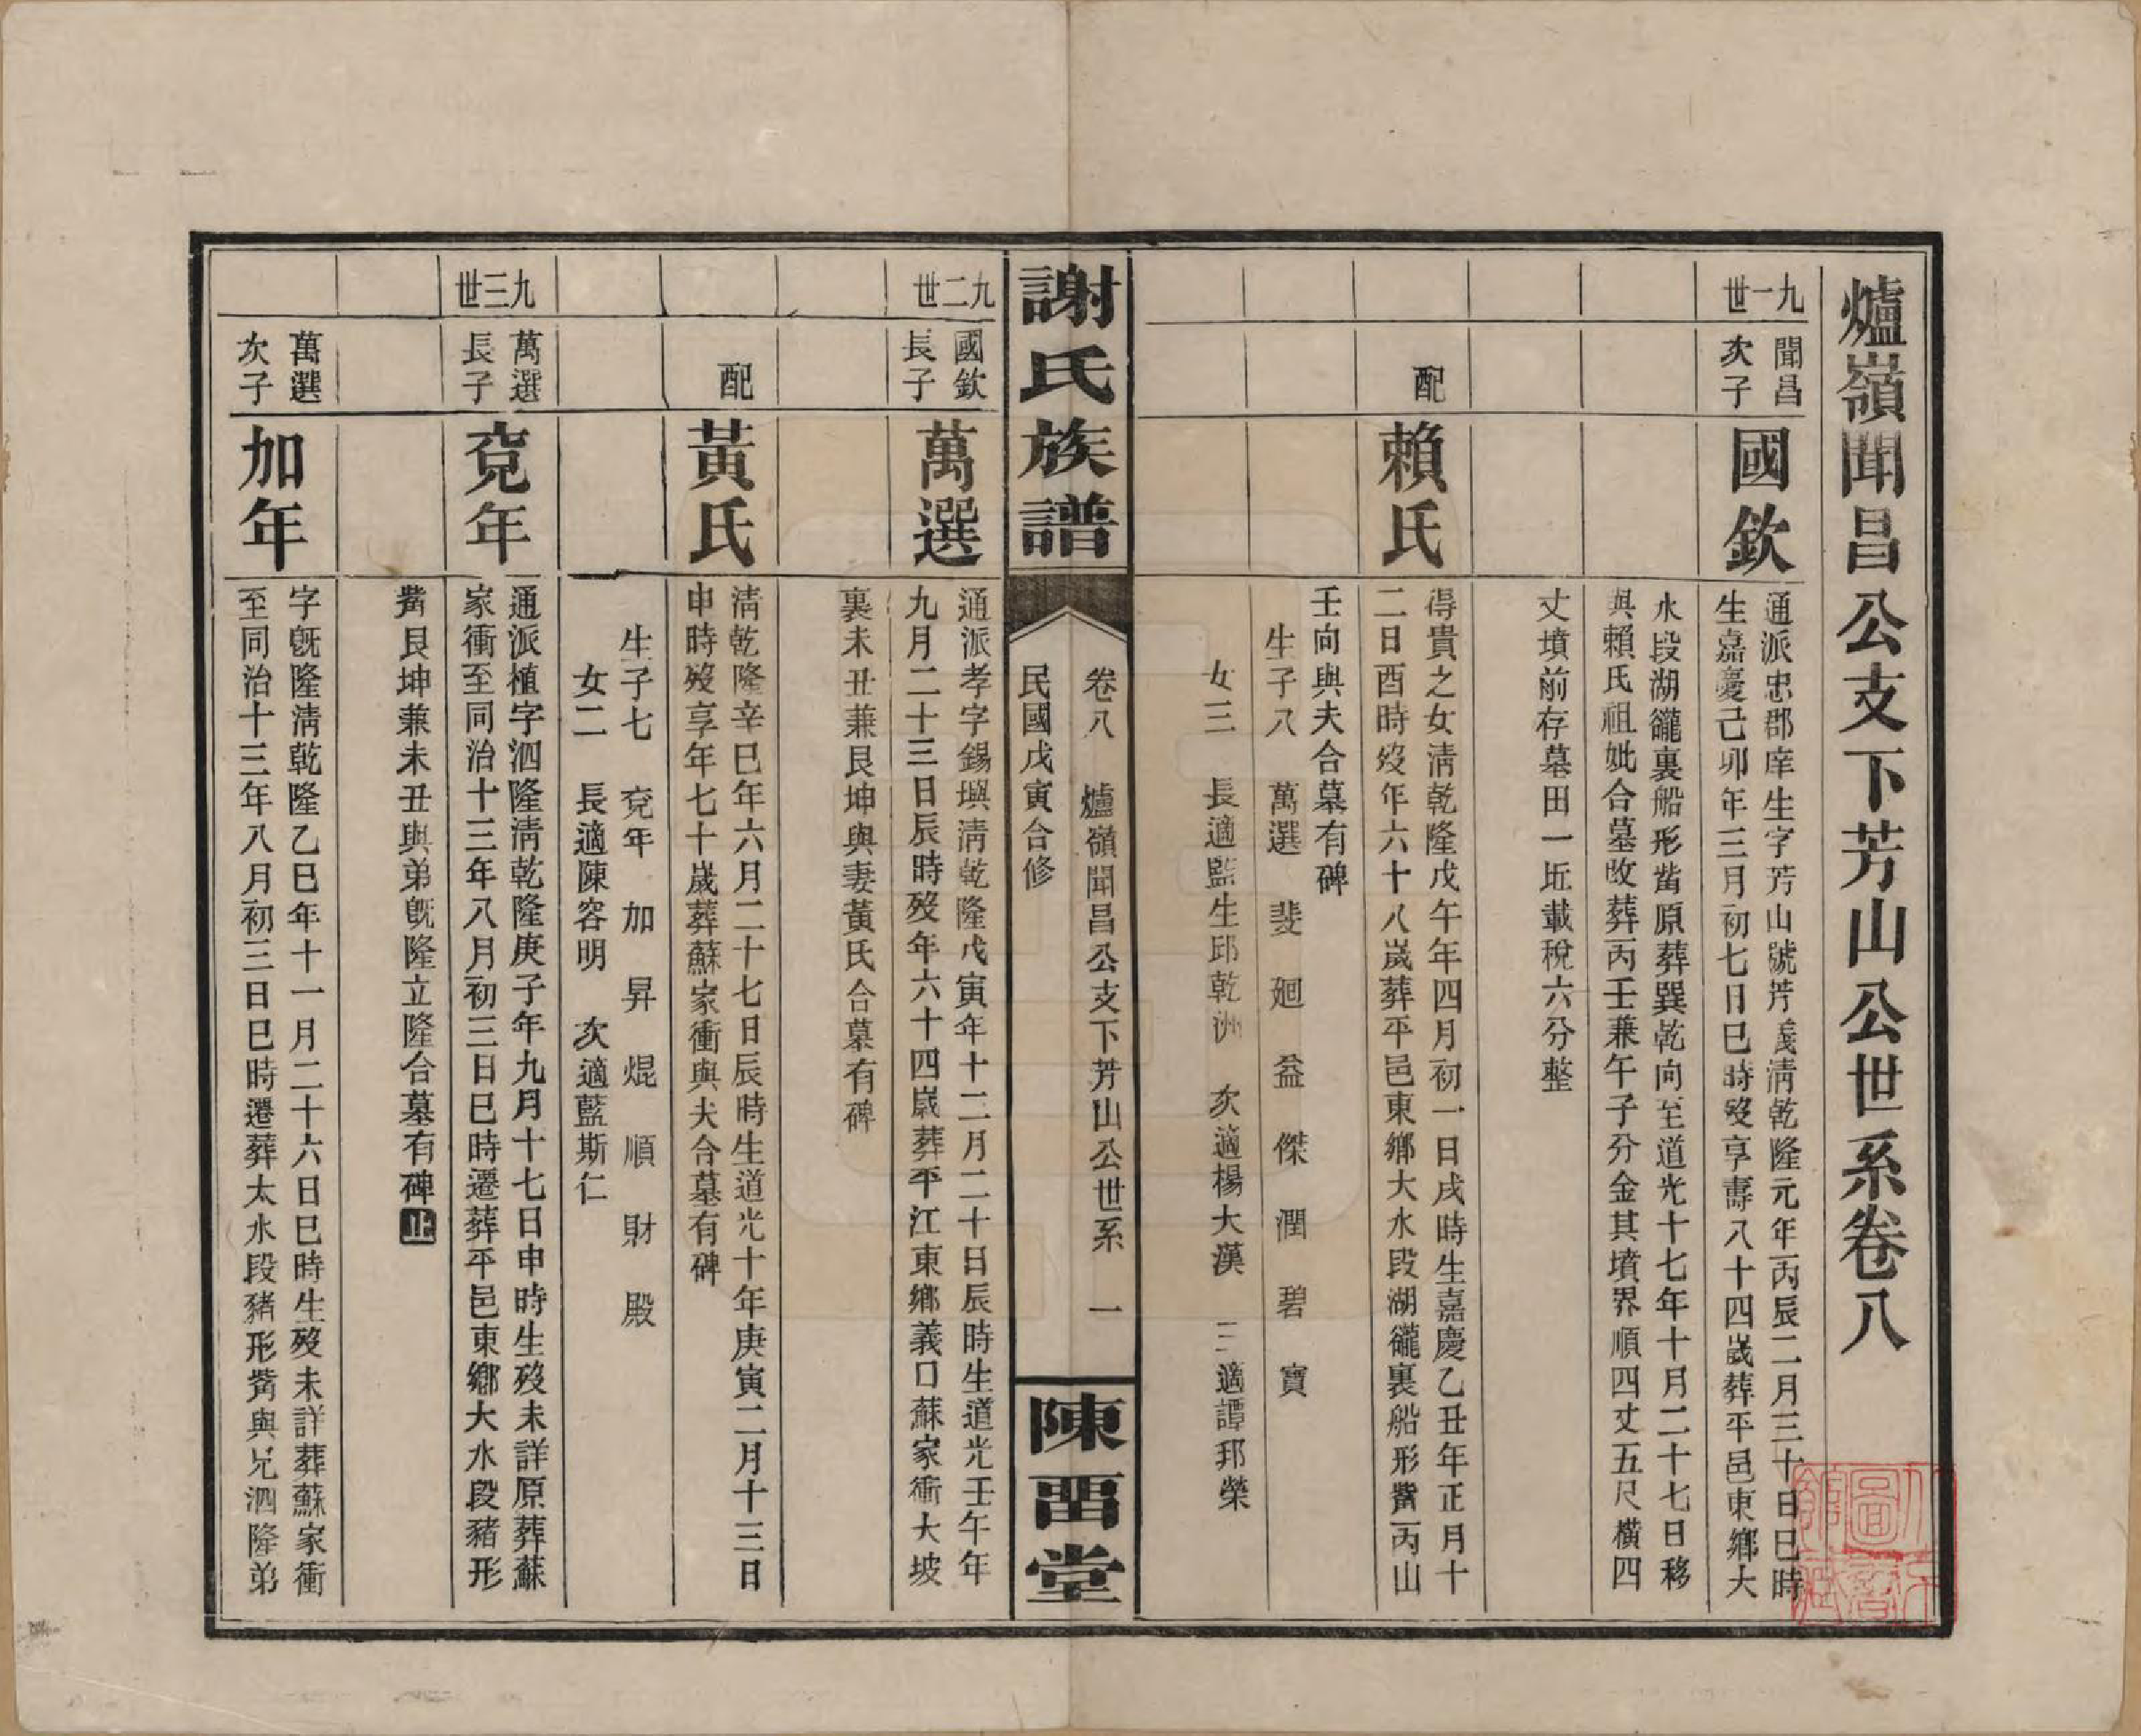 爐嶺聞昌公支下芳山公世系卷八
九一世
聞昌
次子
國欽
通派忠郡庠生字芳山號芳義清乾隆元年丙辰二月三十日巳時
生嘉慶己卯年三月初七日巳時歿享壽八十四歲葬平邑東鄉大
水段湖䃧裏船形嘴原葬巽乾向至道光十七年十月二十七日移
與賴氏祖妣合墓改葬丙壬兼午子分金其墳界順四丈五尺橫四
丈墳前存墓田一坵載稅六分整
配
賴氏
得貴之女清乾隆戊午年四月初一日戌時生嘉慶乙丑年正月十
二日酉時歿年六十八歲葬平邑東鄉大水段湖䃧裏船形嘴丙山
壬向與夫合墓有碑
生子八 萬選 斐 廻 益 傑 潤 碧 寶
女三 長適監生邱乾洲 次適楊大漢 三適譚邦榮
謝氏族譜
卷八 爐嶺聞昌公支下芳山公世系 一
民國戊寅合修
陳畱堂
九二世
國欽
長子
萬選
通派孝字錫㻦清乾隆戊寅年十二月二十日辰時生道光壬午年
九月二十三日辰時歿年六十四歲葬平江東鄉義口蘇家衝大坡
裏未丑兼艮坤與妻黃氏合墓有碑
配
黃氏
清乾隆辛巳年六月二十七日辰時生道光十年庚寅二月十三日
申時歿享年七十歲葬蘇家衝與夫合墓有碑
生子七 兗年 加 昇 焜 順 財 殿
女二 長適陳容明 次適藍斯仁
九三世
萬選
長子
兗年
通派植字泗隆清乾隆庚子年九月十七日申時生歿未詳原葬蘇
家衝至同治十三年八月初三日巳時遷葬平邑東鄉大水段豬形
嘴艮坤兼未丑與弟旣隆立隆合墓有碑止
萬選
次子
加年
字旣隆清乾隆乙巳年十一月二十六日巳時生歿未詳葬蘇家衝
至同治十三年八月初三日巳時遷葬太水段豬形嘴與兄泗隆弟